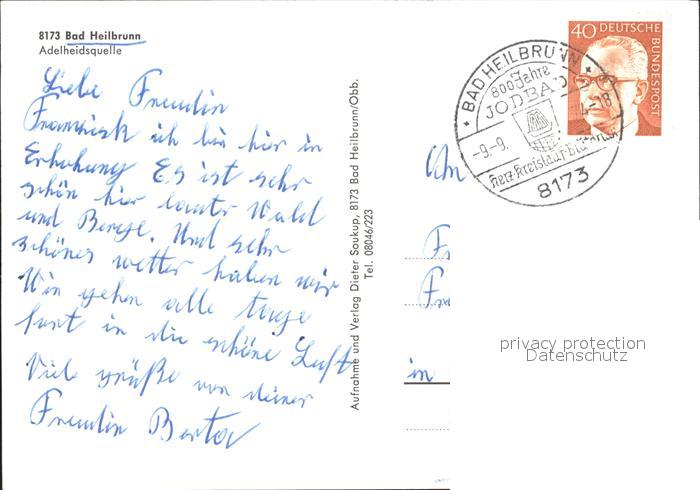 8173 Bad Heilbrunn
Adelheidsquelle
Liebe Freundin
Franzisk ich bin hier in
Erhohung Es ist sehr
schön hier lauter Wald
und Berge. Und sehr
schönes wetter haben wir
Wir gehen alle tage
fort in die schöne Luft
Viele grüße von deiner
Freundin Berta
Aufnahme und Verlag Dieter Soukup, 8173 Bad Heilbrunn/Obb.
Tel. 08046/223
BAD HEILBRUNN
800 Jahre
JODBAD
-9.-9.
-18
Herz-Kreislauf-
8173
40 DEUTSCHE
BUNDESPOST
An
Fr
in
privacy protection
Datenschutz